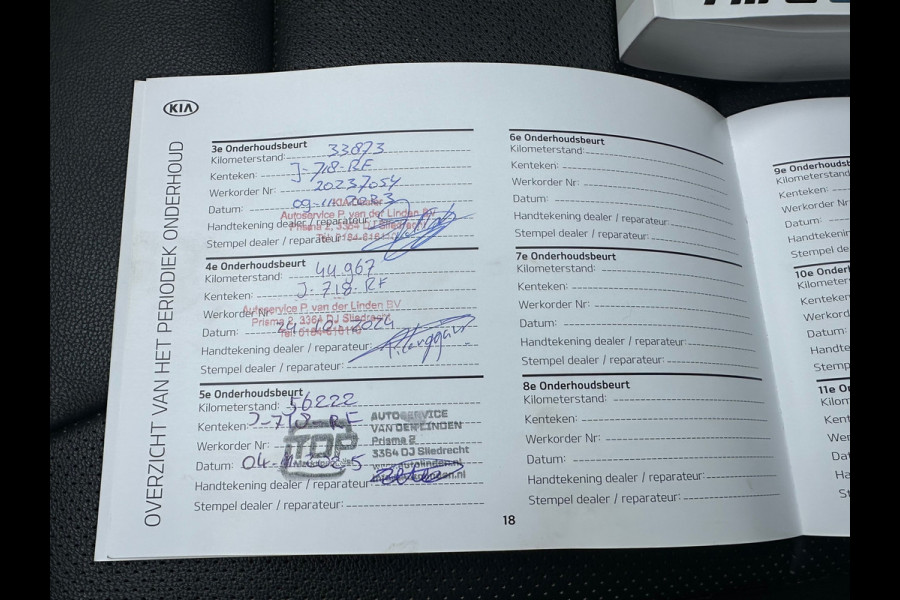 KIA
OVERZICHT VAN HET PERIODIEK ONDERHOUD
3e Onderhoudsbeurt
Kilometerstand: 33873
Kenteken: J-718-RF
Werkorder Nr: 20237054
Datum: 09-11-2023
Autoservice P. van der Linden BV
Handtekening dealer / reparateur:
Prisma 2, 3364 DJ Sliedrecht
Stempel dealer / reparateur:
4e Onderhoudsbeurt
Kilometerstand: 44.967
Kenteken: J-718-RF
Autoservice P. van der Linden BV
Werkorder Nr:
Prisma 2, 3364 DJ Sliedrecht
Datum: 24-10-2024
Handtekening dealer / reparateur:
Stempel dealer / reparateur:
5e Onderhoudsbeurt
Kilometerstand: 56222
Kenteken: J-718-RF
AUTOSERVICE
VAN DER LINDEN
Werkorder Nr:
TOP
Prisma 2
3364 DJ Sliedrecht
Datum: 04-11-2025
www.autolinden.nl
Handtekening dealer / reparateur:
Stempel dealer / reparateur:
18
6e Onderhoudsbeurt
Kilometerstand:
Kenteken:
Werkorder Nr:
Datum:
Handtekening dealer / reparateur:
Stempel dealer / reparateur:
7e Onderhoudsbeurt
Kilometerstand:
Kenteken:
Werkorder Nr:
Datum:
Handtekening dealer / reparateur:
Stempel dealer / reparateur:
8e Onderhoudsbeurt
Kilometerstand:
Kenteken:
Werkorder Nr:
Datum:
Handtekening dealer / reparateur:
Stempel dealer / reparateur:
9e Onderhoudsb
Kilometerstand
Kenteken:
Werkorder Nr
Datum:
Handtekenin
Stempel de
10e Onderh
Kilometer
Kenteken
Werkord
Datum:
Handte
Stemp
11e O
Kilom
Kent
Wer
Da
Ha
St